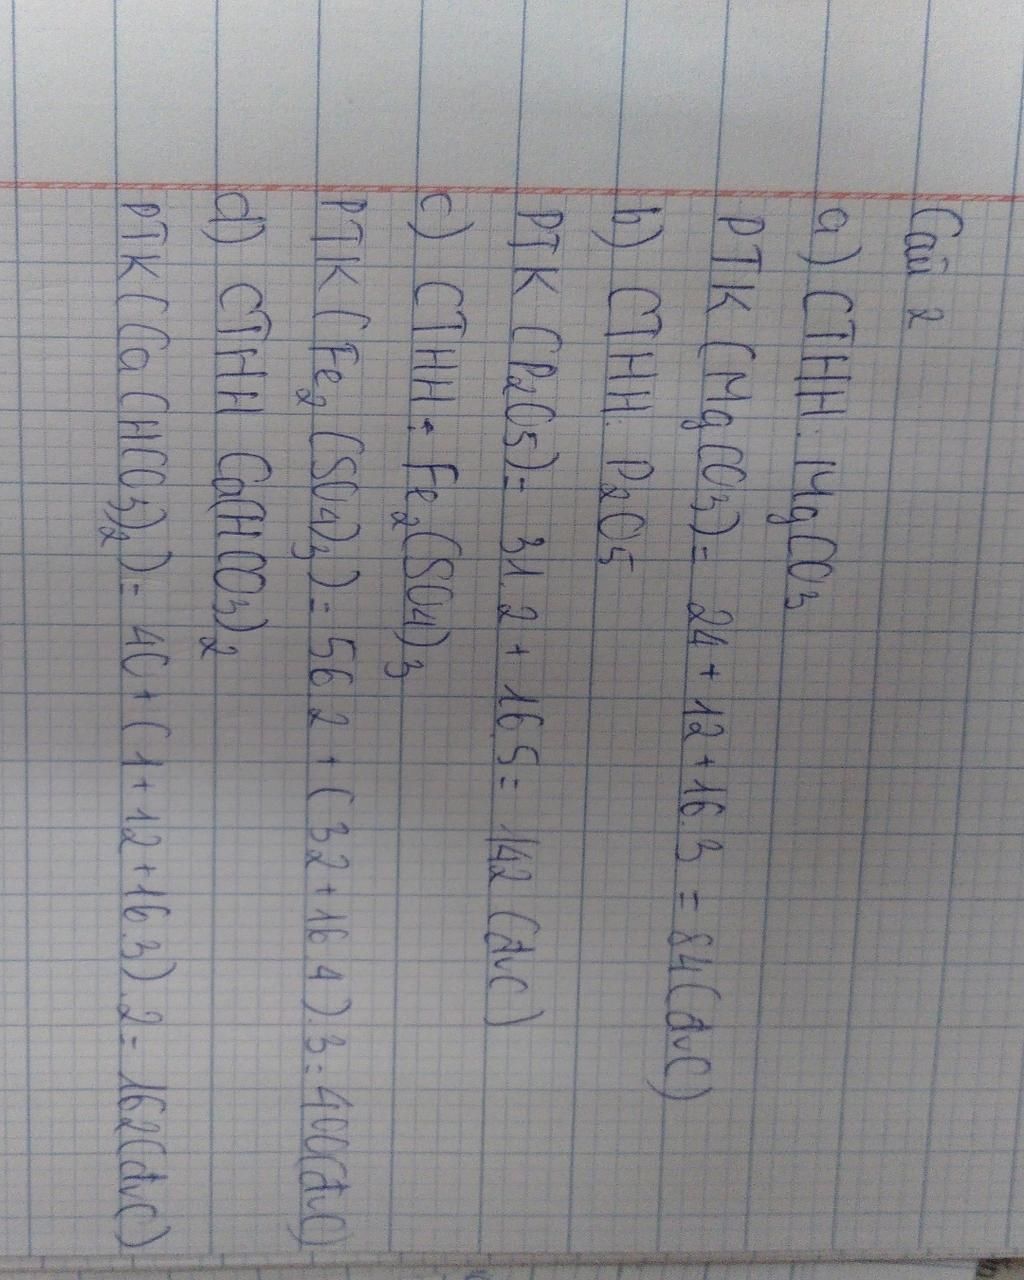 Câu 2
a) CTHH: MgCO3
PTK (MgCO3) = 24 + 12 + 16.3 = 84 (đvC)
b) CTHH: P2O5
PTK (P2O5) = 31.2 + 16.5 = 142 (đvC)
c) CTHH: Fe2(SO4)3
PTK (Fe2(SO4)3) = 56.2 + (32 + 16.4).3 = 400 (đvC)
d) CTHH Ca(HCO3)2
PTK (Ca(HCO3)2) = 40 + (1 + 12 + 16.3).2 = 162 (đvC)